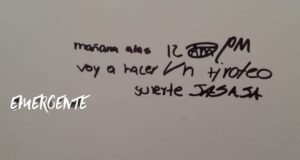 mañana alas 12 PM
voy a hacer Un tiroteo
suerte JASAJA
EMERGENTE